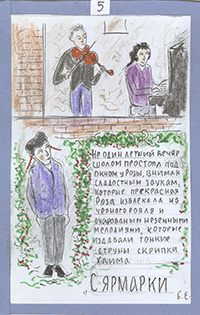 5
Не один летний вечер
Шолом простоял под
окном у Розы, внимая
сладостным звукам,
которые прекрасная
Роза извлекала из
черного рояля и
очарованным неземными
мелодиями, которые
издавали тонкие
струны скрипки
Хаима
"С ЯРМАРКИ"
Б.Е.